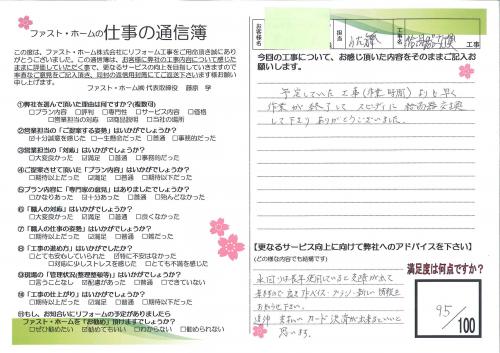 ファスト・ホームの仕事の通信簿
この度は、ファスト・ホーム株式会社にリフォーム工事をご用命頂き誠にあり
がとうございました。この通信簿は、お客様に弊社の工事内容について感じた
ままに評価していただく事で、更なるサービスの向上を目指していきますので
率直なご意見をご記入頂き、同封の返信用封筒にてご返送下さいます様お願い
申し上げます。
ファスト・ホーム㈱ 代表取締役 藤原 学
①弊社を選んで頂いた理由は何ですか？(複数可)
□プラン内容 □評判 □専門性 □サービス内容 □価格
□営業担当の対応 ☑商品説明 □当社の場所
②営業担当の「ご提案する姿勢」はいかがでしょうか？
☑十分誠意を感じた □一生懸命だった □普通 □事務的だった
③営業担当の「対応」はいかがでしょうか？
□大変良かった ☑満足 □普通 □事務的だった
④ご提案させて頂いた「プラン内容」はいかがでしょうか？
□期待以上だった ☑満足 □普通 □期待以下だった
⑤プラン内容に「専門家の意見」はありましたでしょうか？
□かなりあった ☑十分あった □普通 □殆んどなかった
⑥「職人の対応」はいかがでしょうか？
□大変良かった ☑満足 □普通 □良くなかった
⑦「職人の仕事の姿勢」はいかがでしょうか？
□期待以上だった ☑満足 □普通 □雑だった
⑧「工事の進め方」はいかがでしたか？
□とても安心していられた ☑特に不安はなかった
□対応に少しストレスを感じた □とても不満を感じた
⑨現場の「管理状況(整理整頓等)」はいかがでしょうか？
□言うことなし ☑配慮があった □普通 □できていない
⑩「工事の仕上がり」はいかがでしょうか？
□期待以上だった ☑満足 □普通 □期待以下だった
⑪もし、お知合いにリフォームの予定がありましたら
ファスト・ホームを「お勧め」頂けますでしょうか？
□ぜひ勧めたい ☑勧めてもいい □わからない □勧められない
お客様名
担当
工事
今回の工事について、お感じ頂いた内容をそのままご記入お
願いします。
予定していた工事(作業時間)よりも早く
作業が終了してスピーディに給湯器交換
して下さりありがとうございました。
【更なるサービス向上に向けて弊社へのアドバイスを下さい】
(どの様な内容でも結構です)
水回りは長年使用していると支障が出て
きますので 良きアドバイス・プラン・新しい情報を
お知らせ下さい。
追伸 支払い カード決済が出来るといいと
思います。
満足度は何点ですか？
95/100